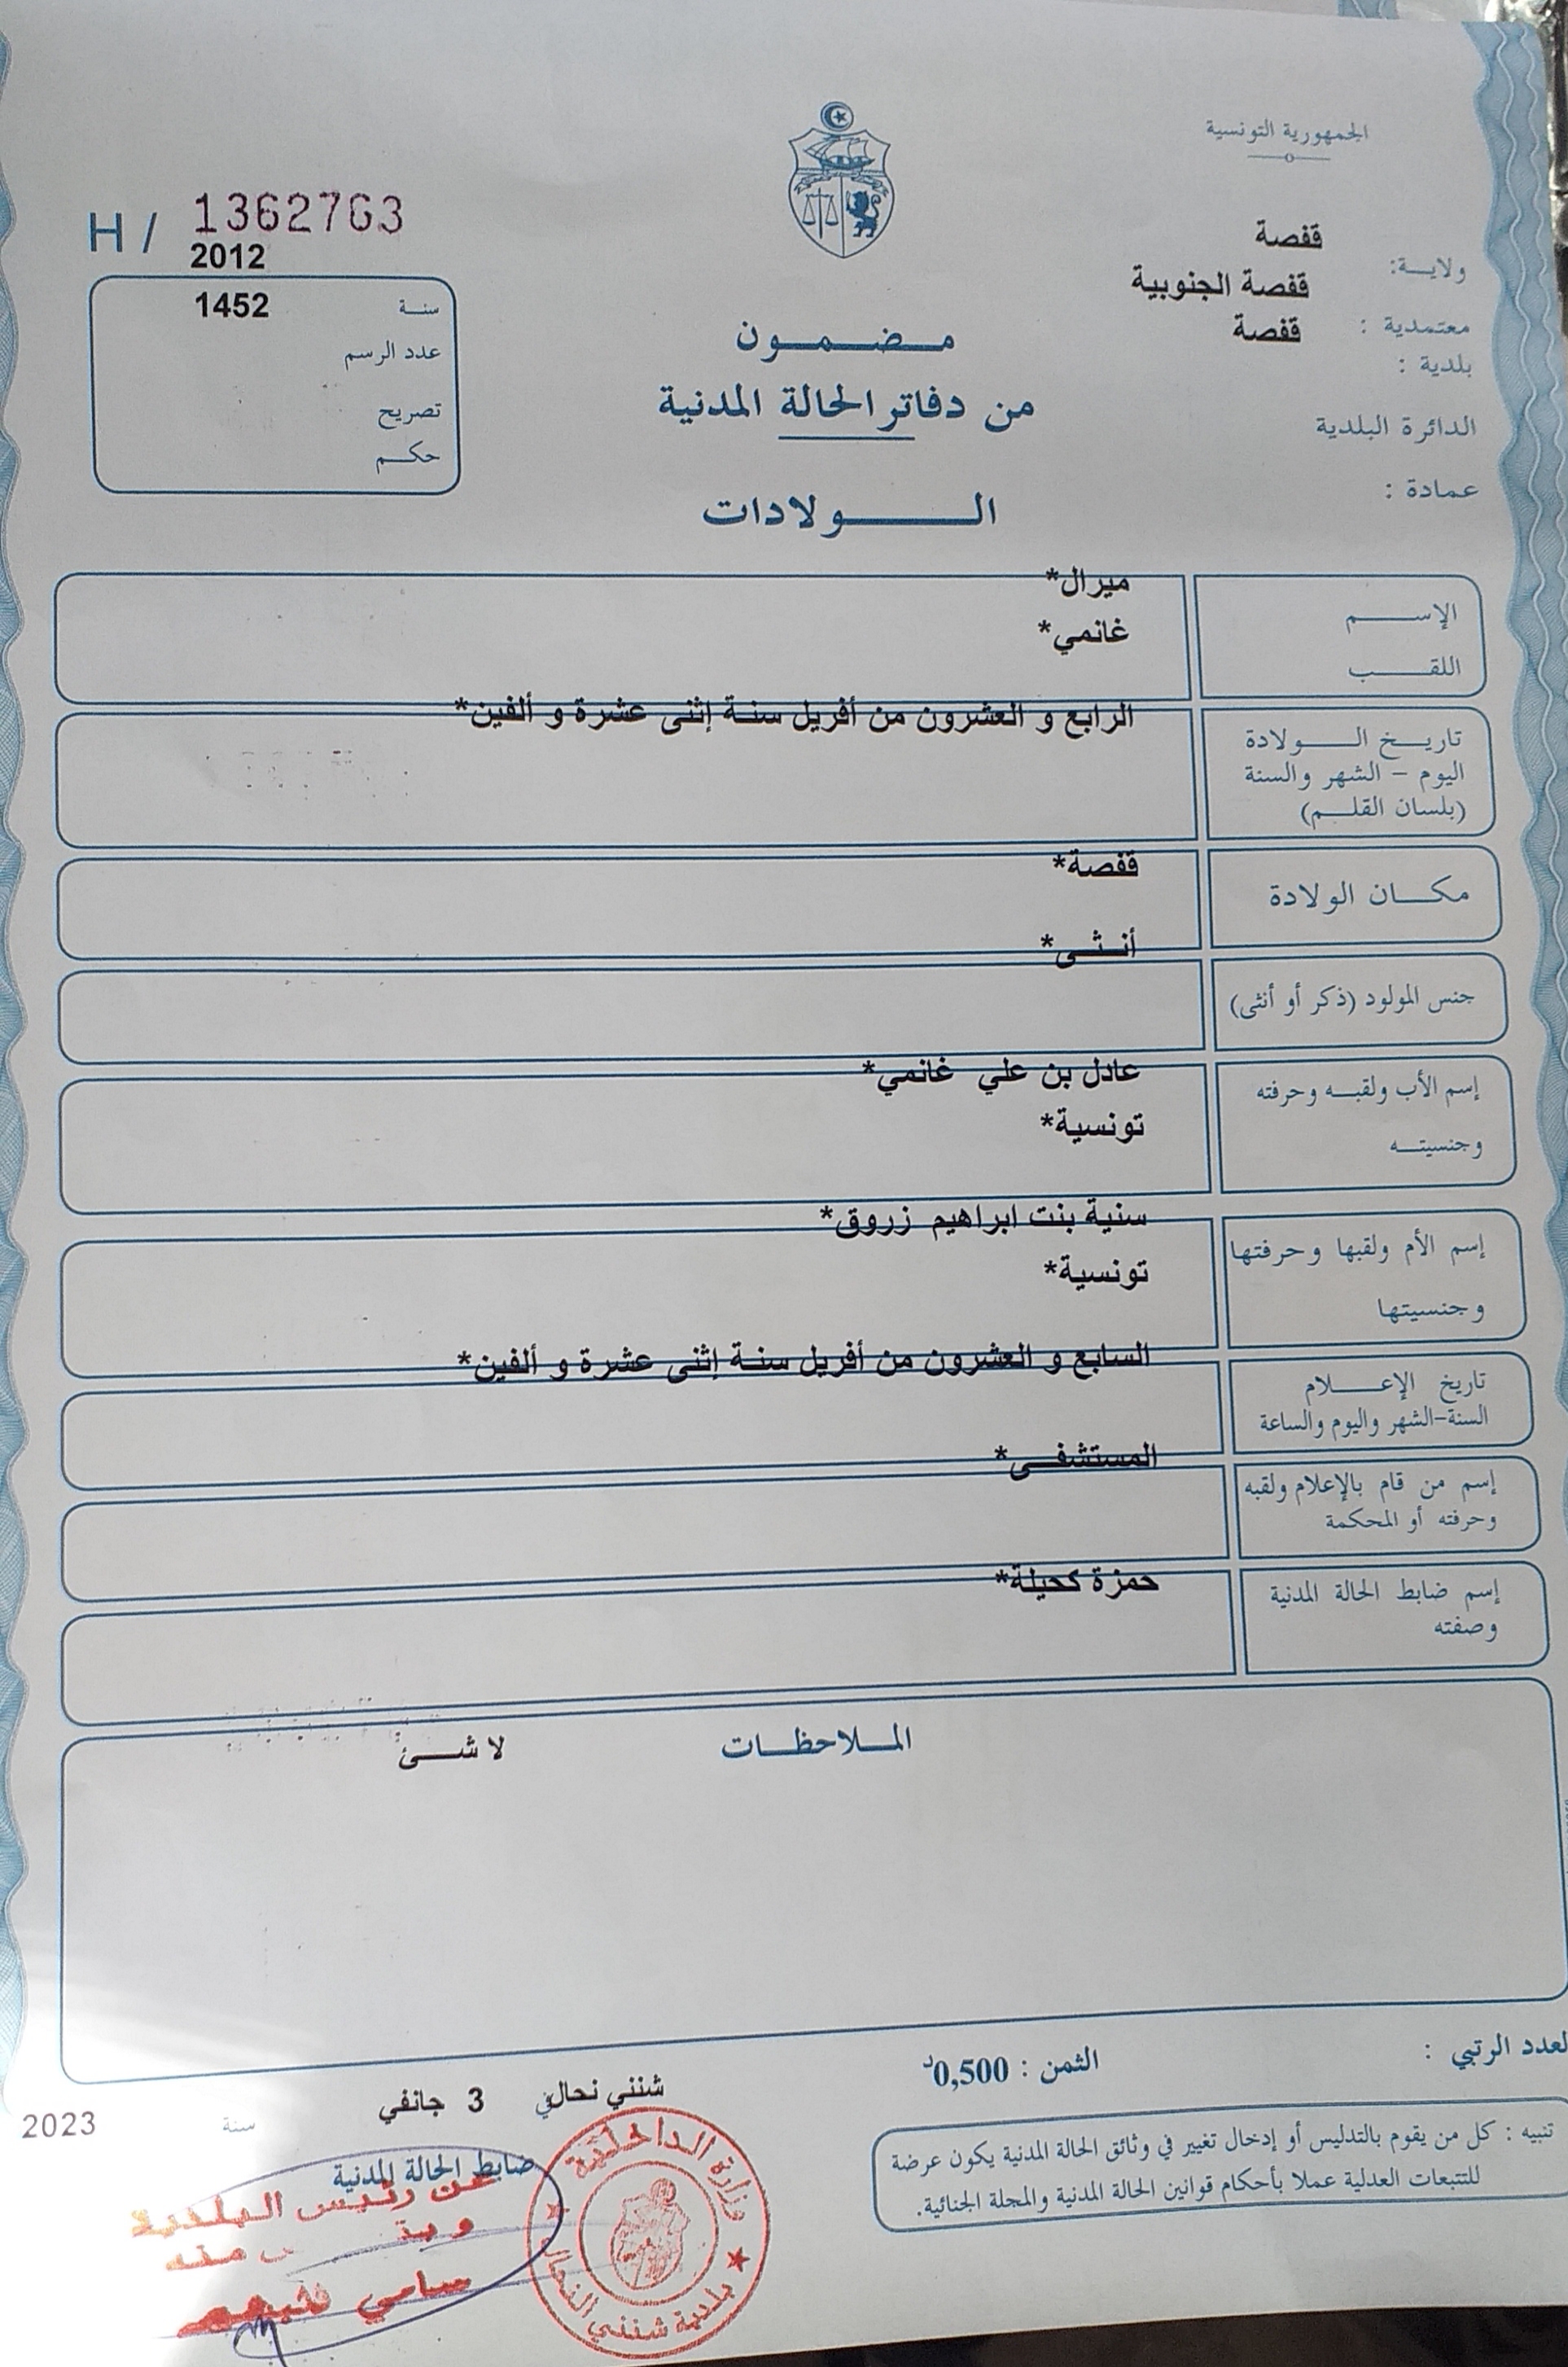 الجمهورية التونسية
H / 1362763
ولاية: قفصة
معتمدية : قفصة الجنوبية
بلدية : قفصة
الدائرة البلدية
عمادة :
2012
سنة 1452
عدد الرسم
تصريح
حكم
مضمون
من دفاتر الحالة المدنية
الولادات
الإسم ميرال*
اللقب غانمي*
تاريخ الولادة الرابع و العشرون من أفريل سنة إثنى عشرة و ألفين*
اليوم – الشهر والسنة
(بلسان القلم)
مكان الولادة قفصة*
جنس المولود (ذكر أو أنثى) أنثى*
إسم الأب ولقبه وحرفته عادل بن علي غانمي*
وجنسيته تونسية*
إسم الأم ولقبها وحرفتها سنية بنت ابراهيم زروق*
وجنسيتها تونسية*
تاريخ الإعلام السابع و العشرون من أفريل سنة إثنى عشرة و ألفين*
السنة-الشهر واليوم والساعة
إسم من قام بالإعلام ولقبه المستشفى*
وحرفته أو المحكمة
إسم ضابط الحالة المدنية حمزة كحيلة*
وصفته
الملاحظات لا شئ
لعدد الرتبي :
الثمن : 0,500د
شنني نحال في 3 جانفي سنة 2023
تنبيه : كل من يقوم بالتدليس أو إدخال تغيير في وثائق الحالة المدنية يكون عرضة
للتتبعات العدلية عملا بأحكام قوانين الحالة المدنية والمجلة الجنائية.
ضابط الحالة المدنية
عن رئيس البلدية
منه
سامي
وزارة الداخلية
بلدية شنني النحال